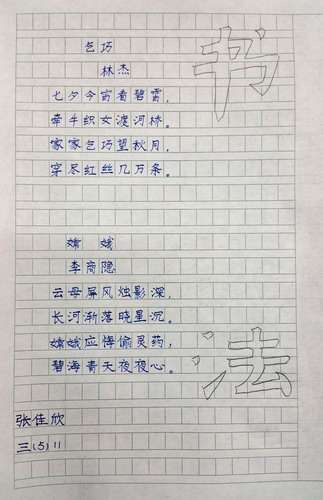 乞巧
林杰
七夕今宵看碧霄,
牵牛织女渡河桥。
家家乞巧望秋月,
穿尽红丝几万条。
嫦娥
李商隐
云母屏风烛影深,
长河渐落晓星沉。
嫦娥应悔偷灵药,
碧海青天夜夜心。
书法
张佳欣
三(5)11